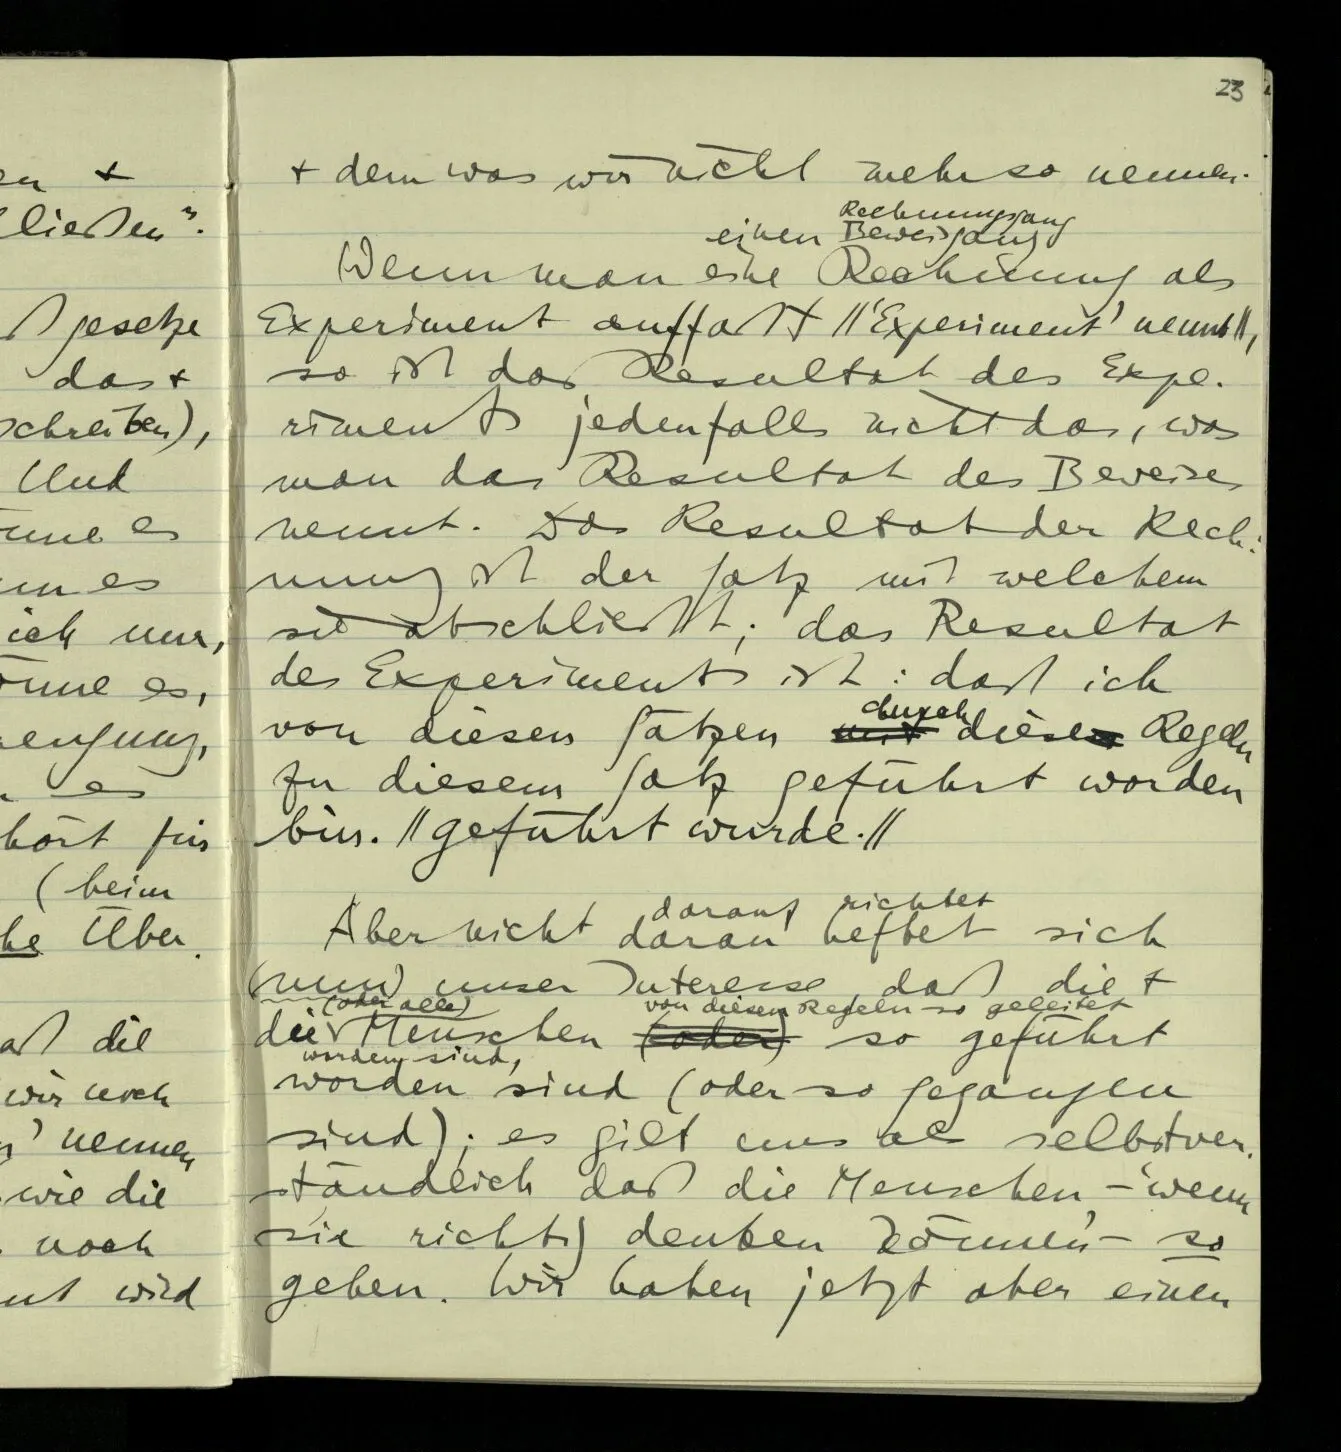 en +
ließen".
gesetze
das +
schreiben),
Und
es
es
ich nur,
es,
es
hört für
(beim
he Über¬
die
wir noch
' nennen
wie die
noch
wird
23
+ dem was wir nicht mehr so nennen.
Rechnungsgang
einen Beweisgang
Wenn man eine Rechnung als
Experiment auffaßt //'Experiment' nennt//,
so ist das Resultat des Expe-
riments jedenfalls nicht das, was
man das Resultat des Beweises
nennt. Das Resultat der Rech-
nung ist der Satz mit welchem
sie abschließt; das Resultat
des Experiments ist: daß ich
durch
von diesen Sätzen mit diesen Regeln
zu diesem Satz geführt worden
bin. //geführt wurde.//
darauf richtet
Aber nicht daran heftet sich
(nun) unser Interesse, daß die +
(oder alle) von diesen Regeln so geleitet
die Menschen (oder) so geführt
worden sind,
worden sind (oder so gegangen
sind); es gilt uns als selbstver-
ständlich daß die Menschen – 'wenn
sie richtig denken können' – so
gehen. Wir haben jetzt aber einen